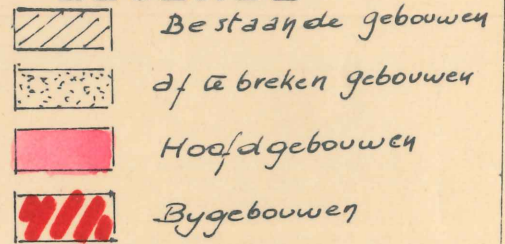 Bestaande gebouwen
af te breken gebouwen
Hoofdgebouwen
Bygebouwen